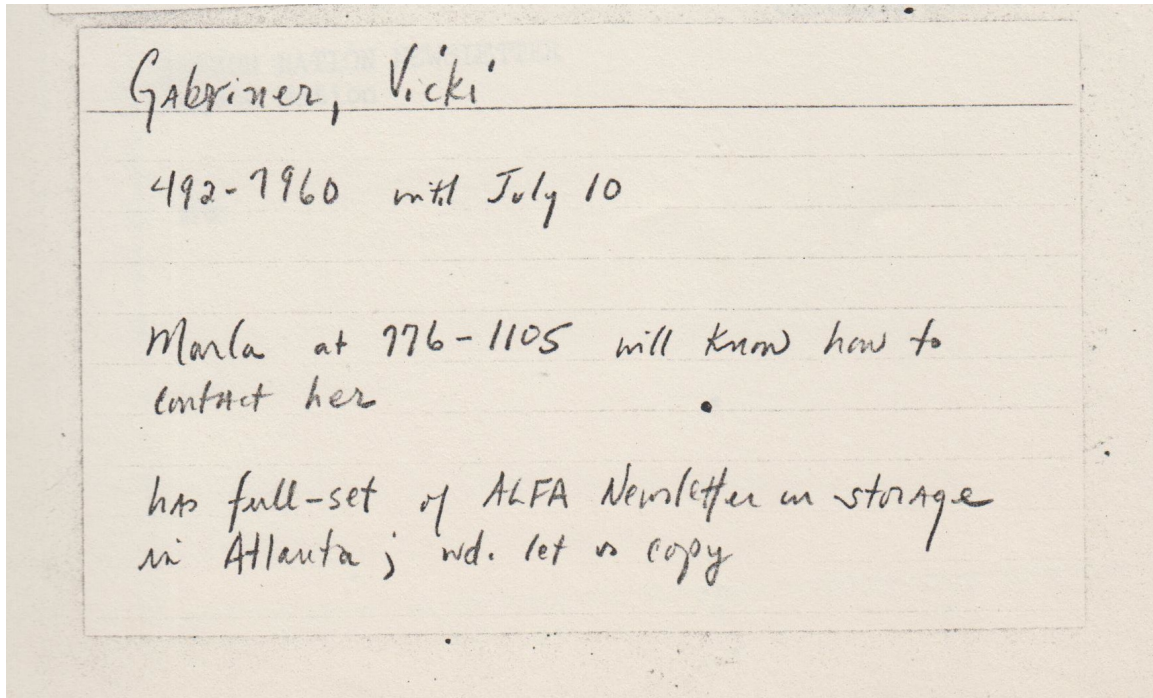 Gabriner, Vicki
492-7960 until July 10
Marla at 776-1105 will know how to
contact her
has full-set of ALFA Newsletter in storage
in Atlanta; wd. let us copy
NEWSLETTER